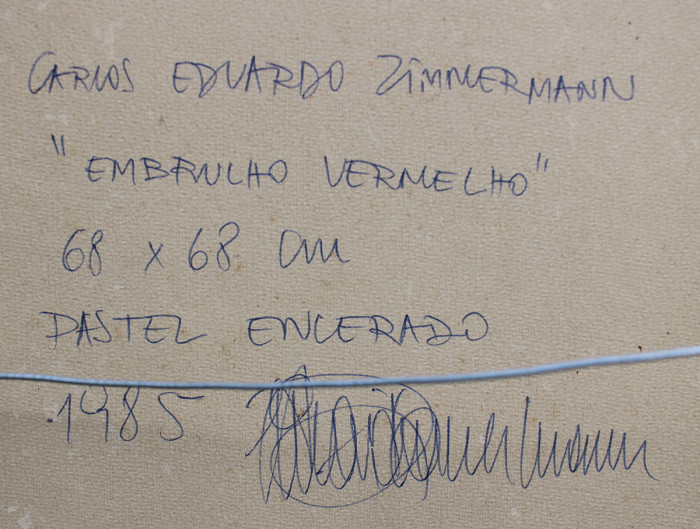 CARLOS EDUARDO ZIMMERMANN
"EMBRULHO VERMELHO"
68 x 68 cm
PASTEL ENCERADO
1985